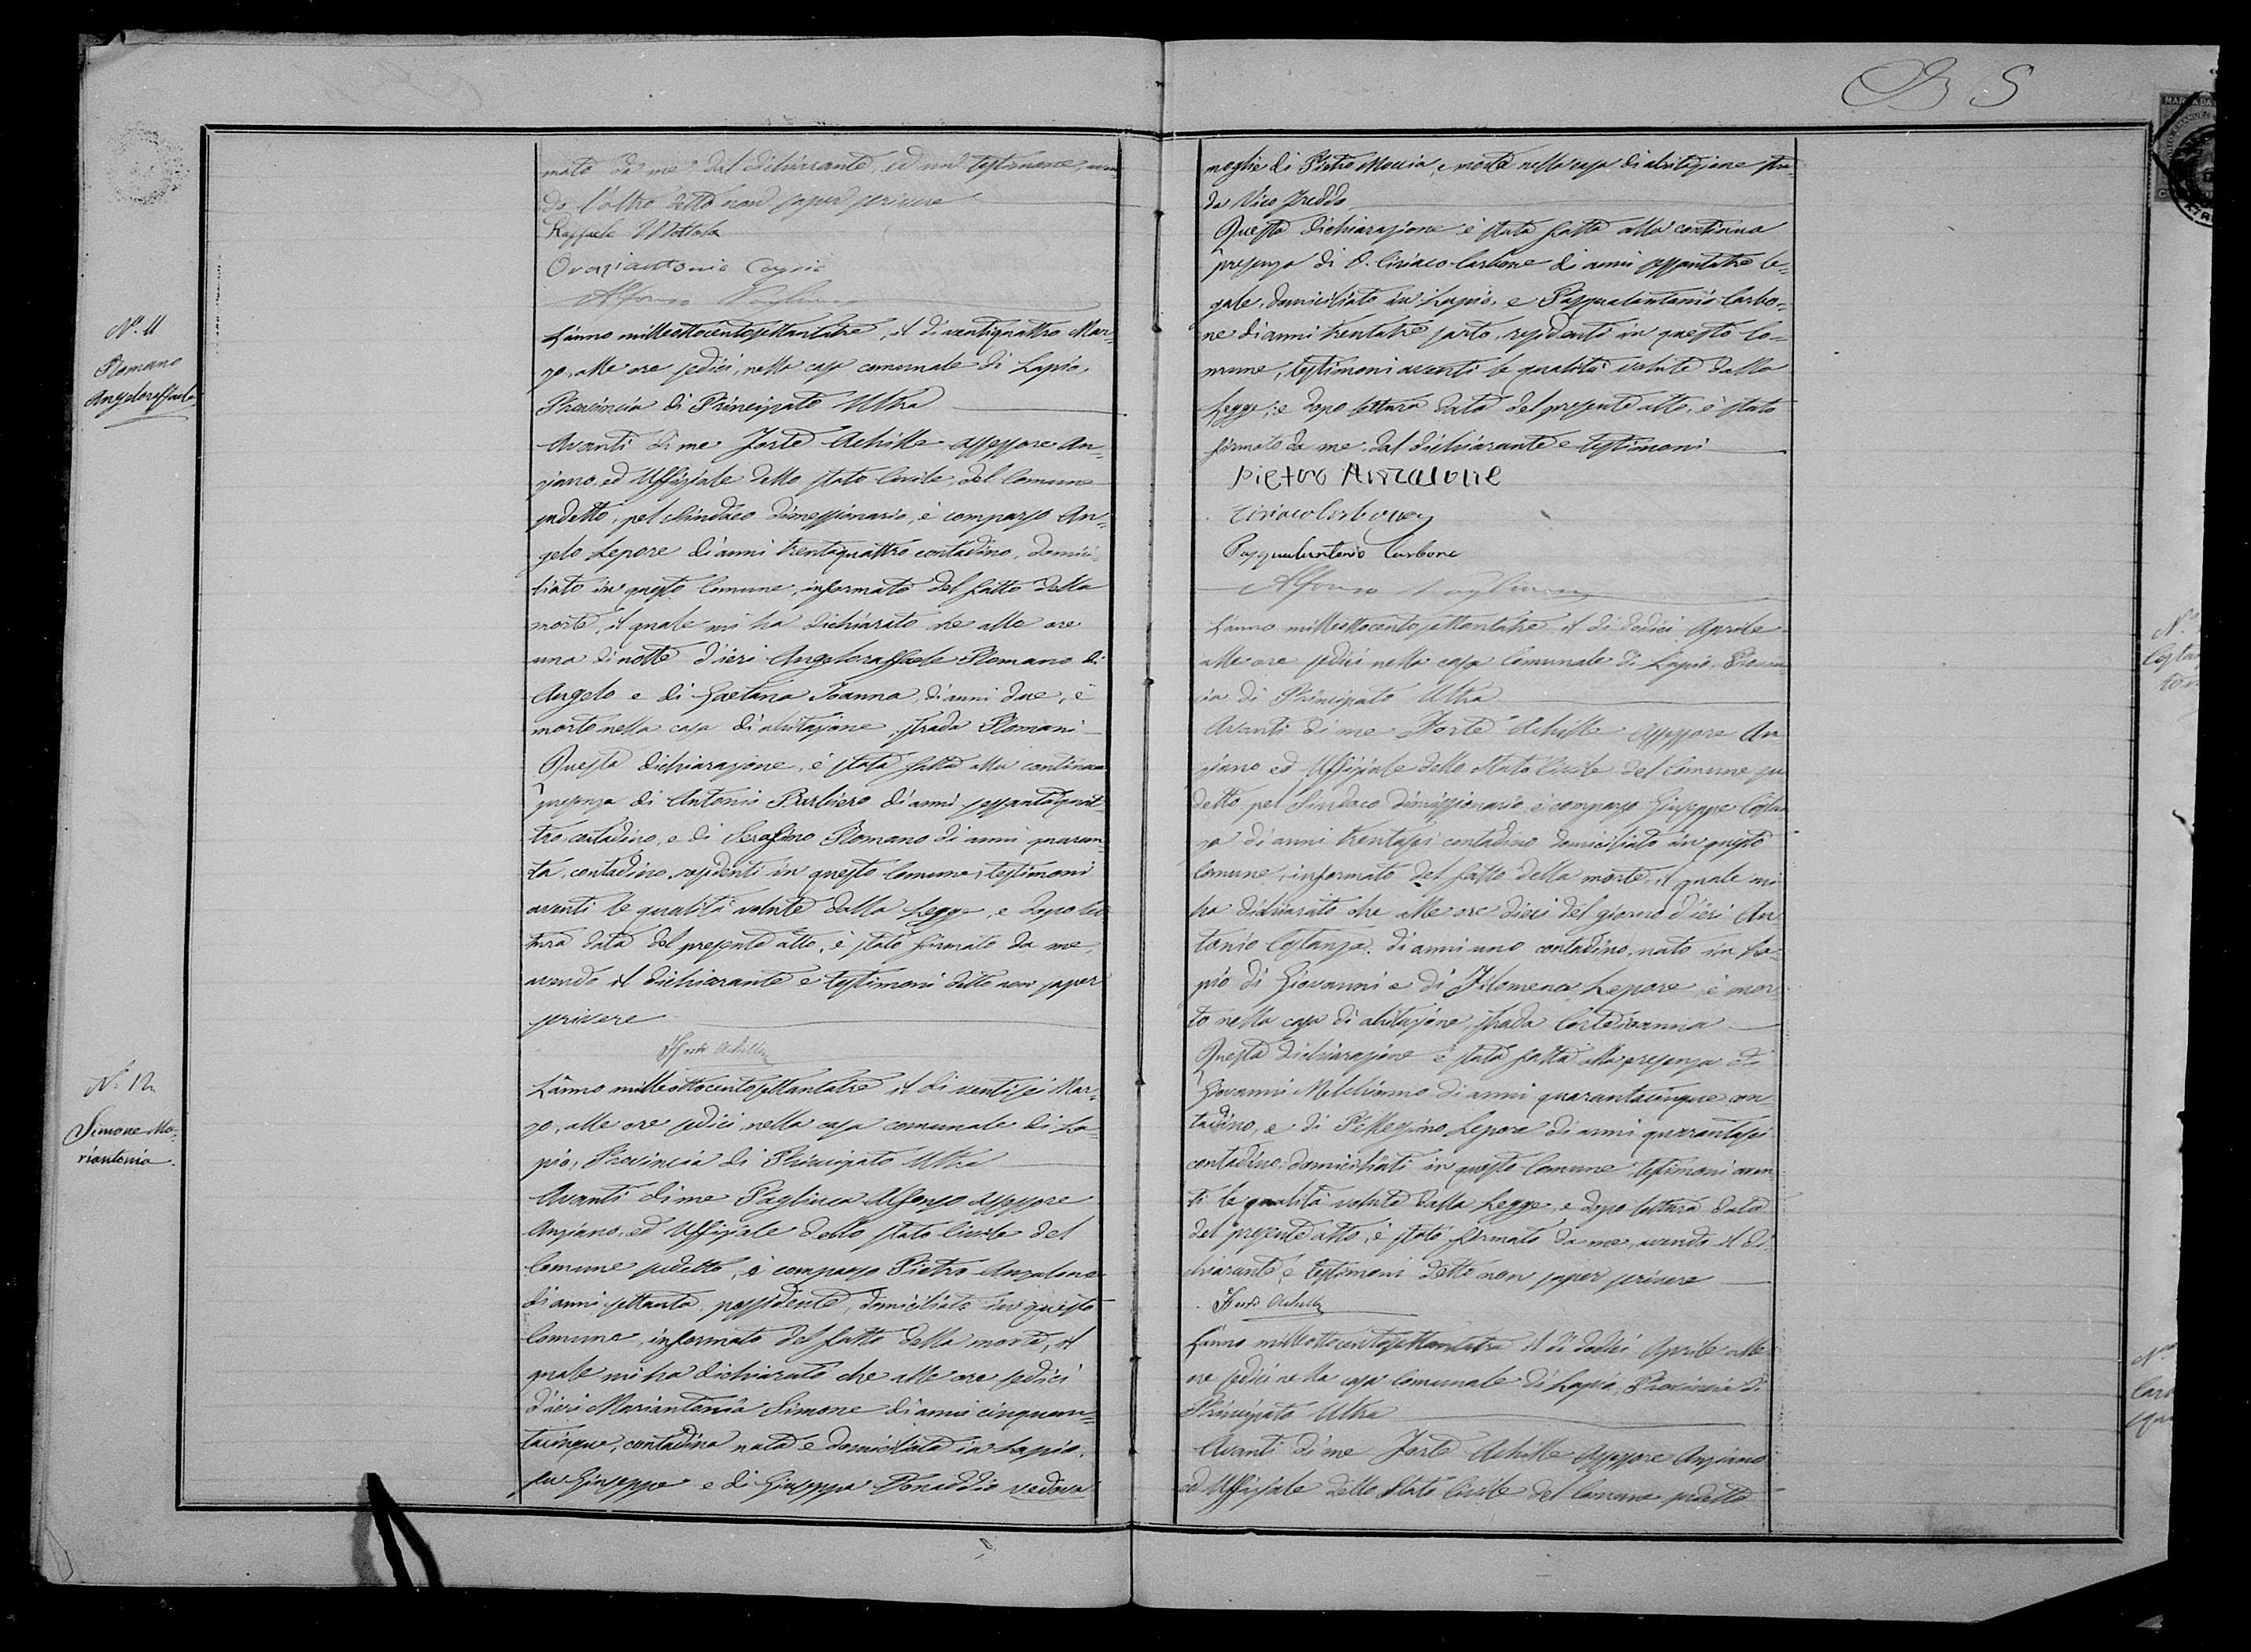 B S
mato da me, dal dichiarante, ed un testimone, aven-
do l'altro detto non saper scrivere
Raffaele Mottola
Oraziantonio
Alfonso Pagliuca
N.º 11
Romano
Angeloraffaele
L'anno milleottocentosettantatre, il dì ventiquattro Mar-
zo, alle ore sedici, nella casa comunale di Lapio,
Provincia di Principato Ultra
Avanti di me Forte Achille Assessore An-
ziano, ed Uffiziale dello stato Civile, del Comune
sudetto, pel Sindaco dimessionario, è comparso An-
gelo Lepore di anni trentaquattro contadino, domici-
liato in questo Comune, informato del fatto della
morte, il quale mi ha dichiarato che alle ore
una di notte d'ieri Angeloraffaele Romano di
Angelo e di Gaetana Ioanna, di anni due, è
morto nella casa di abitazione, strada Romani
Questa dichiarazione, è stata fatta alla continua
presenza di Antonio Barbiero di anni sessantaquat-
tro, contadino, e di Serafino Romano di anni quaran-
ta, contadino, residenti in questo Comune, testimoni
aventi le qualità volute dalla Legge, e dopo let-
tura data del presente atto, è stato firmato da me,
avendo il dichiarante e testimoni detto non saper
scrivere
Forte Achille
N.º 12
Simone Ma-
riantonia
L'anno milleottocentosettantatre il dì ventisei Mar-
zo, alle ore sedici, nella casa comunale di La-
pio, Provincia di Principato Ultra
Avanti di me Pagliuca Alfonso Assessore
Anziano, ed Uffiziale dello stato Civile del
Comune sudetto, è comparso Pietro Anzalone
di anni settanta, possidente, domiciliato in questo
Comune, informato del fatto della morte, il
quale mi ha dichiarato che alle ore sedici
d'ieri Mariantonia Simone di anni cinquan-
tacinque, contadina nata e domiciliata in Lapio,
fu Giuseppe e di Giuseppa Donaddio vedova
moglie di Pietro Moccia, è morta nella casa di abitazione stra-
da Vico Freddo
Questa dichiarazione è stata fatta alla continua
presenza di D. Ciriaco Carbone di anni sessantatre le-
gale, domiciliato in Lapio, e Pasqualantonio Carbo-
ne di anni trentatre sarto, residenti in questo Co-
mune, testimoni aventi le qualità volute dalla
Legge, e dopo lettura data del presente atto, è stato
firmato da me, dal dichiarante e testimoni
Pietro Anzalone
Ciriaco Carbone
Pasqualantonio Carbone
Alfonso Pagliuca
L'anno milleottocentosettantatre il dì dodici Aprile
alle ore sedici nella casa Comunale di Lapio, Provin-
cia di Principato Ultra
Avanti di me Forte Achille Assessore An-
ziano ed Uffiziale dello Stato Civile del Comune su-
detto pel Sindaco dimissionario è comparso Giuseppe Costan-
za di anni trentasei contadino domiciliato in questo
Comune, informato del fatto della morte, il quale mi
ha dichiarato che alle ore dieci del giorno d'ieri An-
tonio Costanza, di anni uno contadino, nato in La-
pio di Giovanni e di Filomena Lepore, è mor-
to nella casa di abitazione, strada Corte Ioanna
Questa dichiarazione è stata fatta alla presenza di
Giovanni di anni quarantacinque con-
tadino, e di Pellegrino Lepore di anni quarantasei
contadino, domiciliati in questo Comune testimoni aven-
ti le qualità volute dalla Legge, e dopo lettura data
del presente atto, è stato firmato da me, avendo il di-
chiarante, e testimoni detto non saper scrivere
Forte Achille
L'anno milleottocentosettantatre il dì dodici Aprile alle
ore sedici nella casa Comunale di Lapio, Provincia di
Principato Ultra
Avanti di me Forte Achille Assessore Anziano
ed Uffiziale dello Stato Civile del Comune sudetto